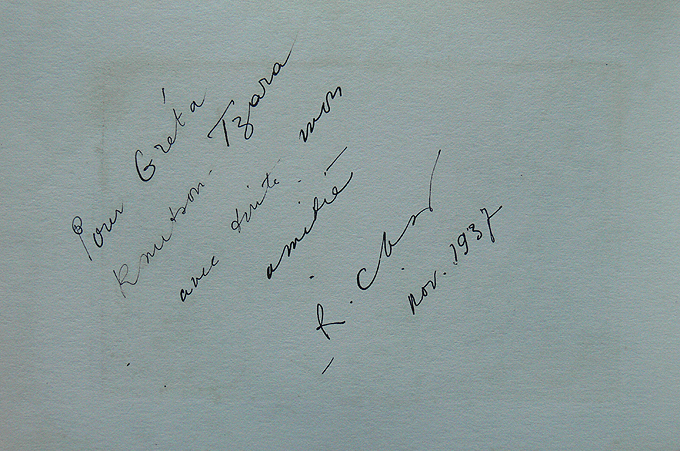 Pour Gréta
Knutson. Tzara
avec toute mon
amitié
R. Char
nov. 1937